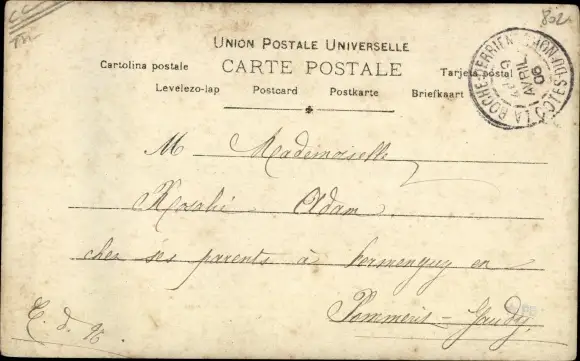 802
UNION POSTALE UNIVERSELLE
CARTE POSTALE
Cartolina postale
Tarjeta postal
Levelezo-lap Postcard Postkarte Briefkaart
LA ROCHE-DERRIEN
CÔTES-DU-NORD
AVRIL
06
M Mademoiselle
Rosalie Adam
chez ses parents à Kermenguy en
Pommerit-Jaudy
E. d.